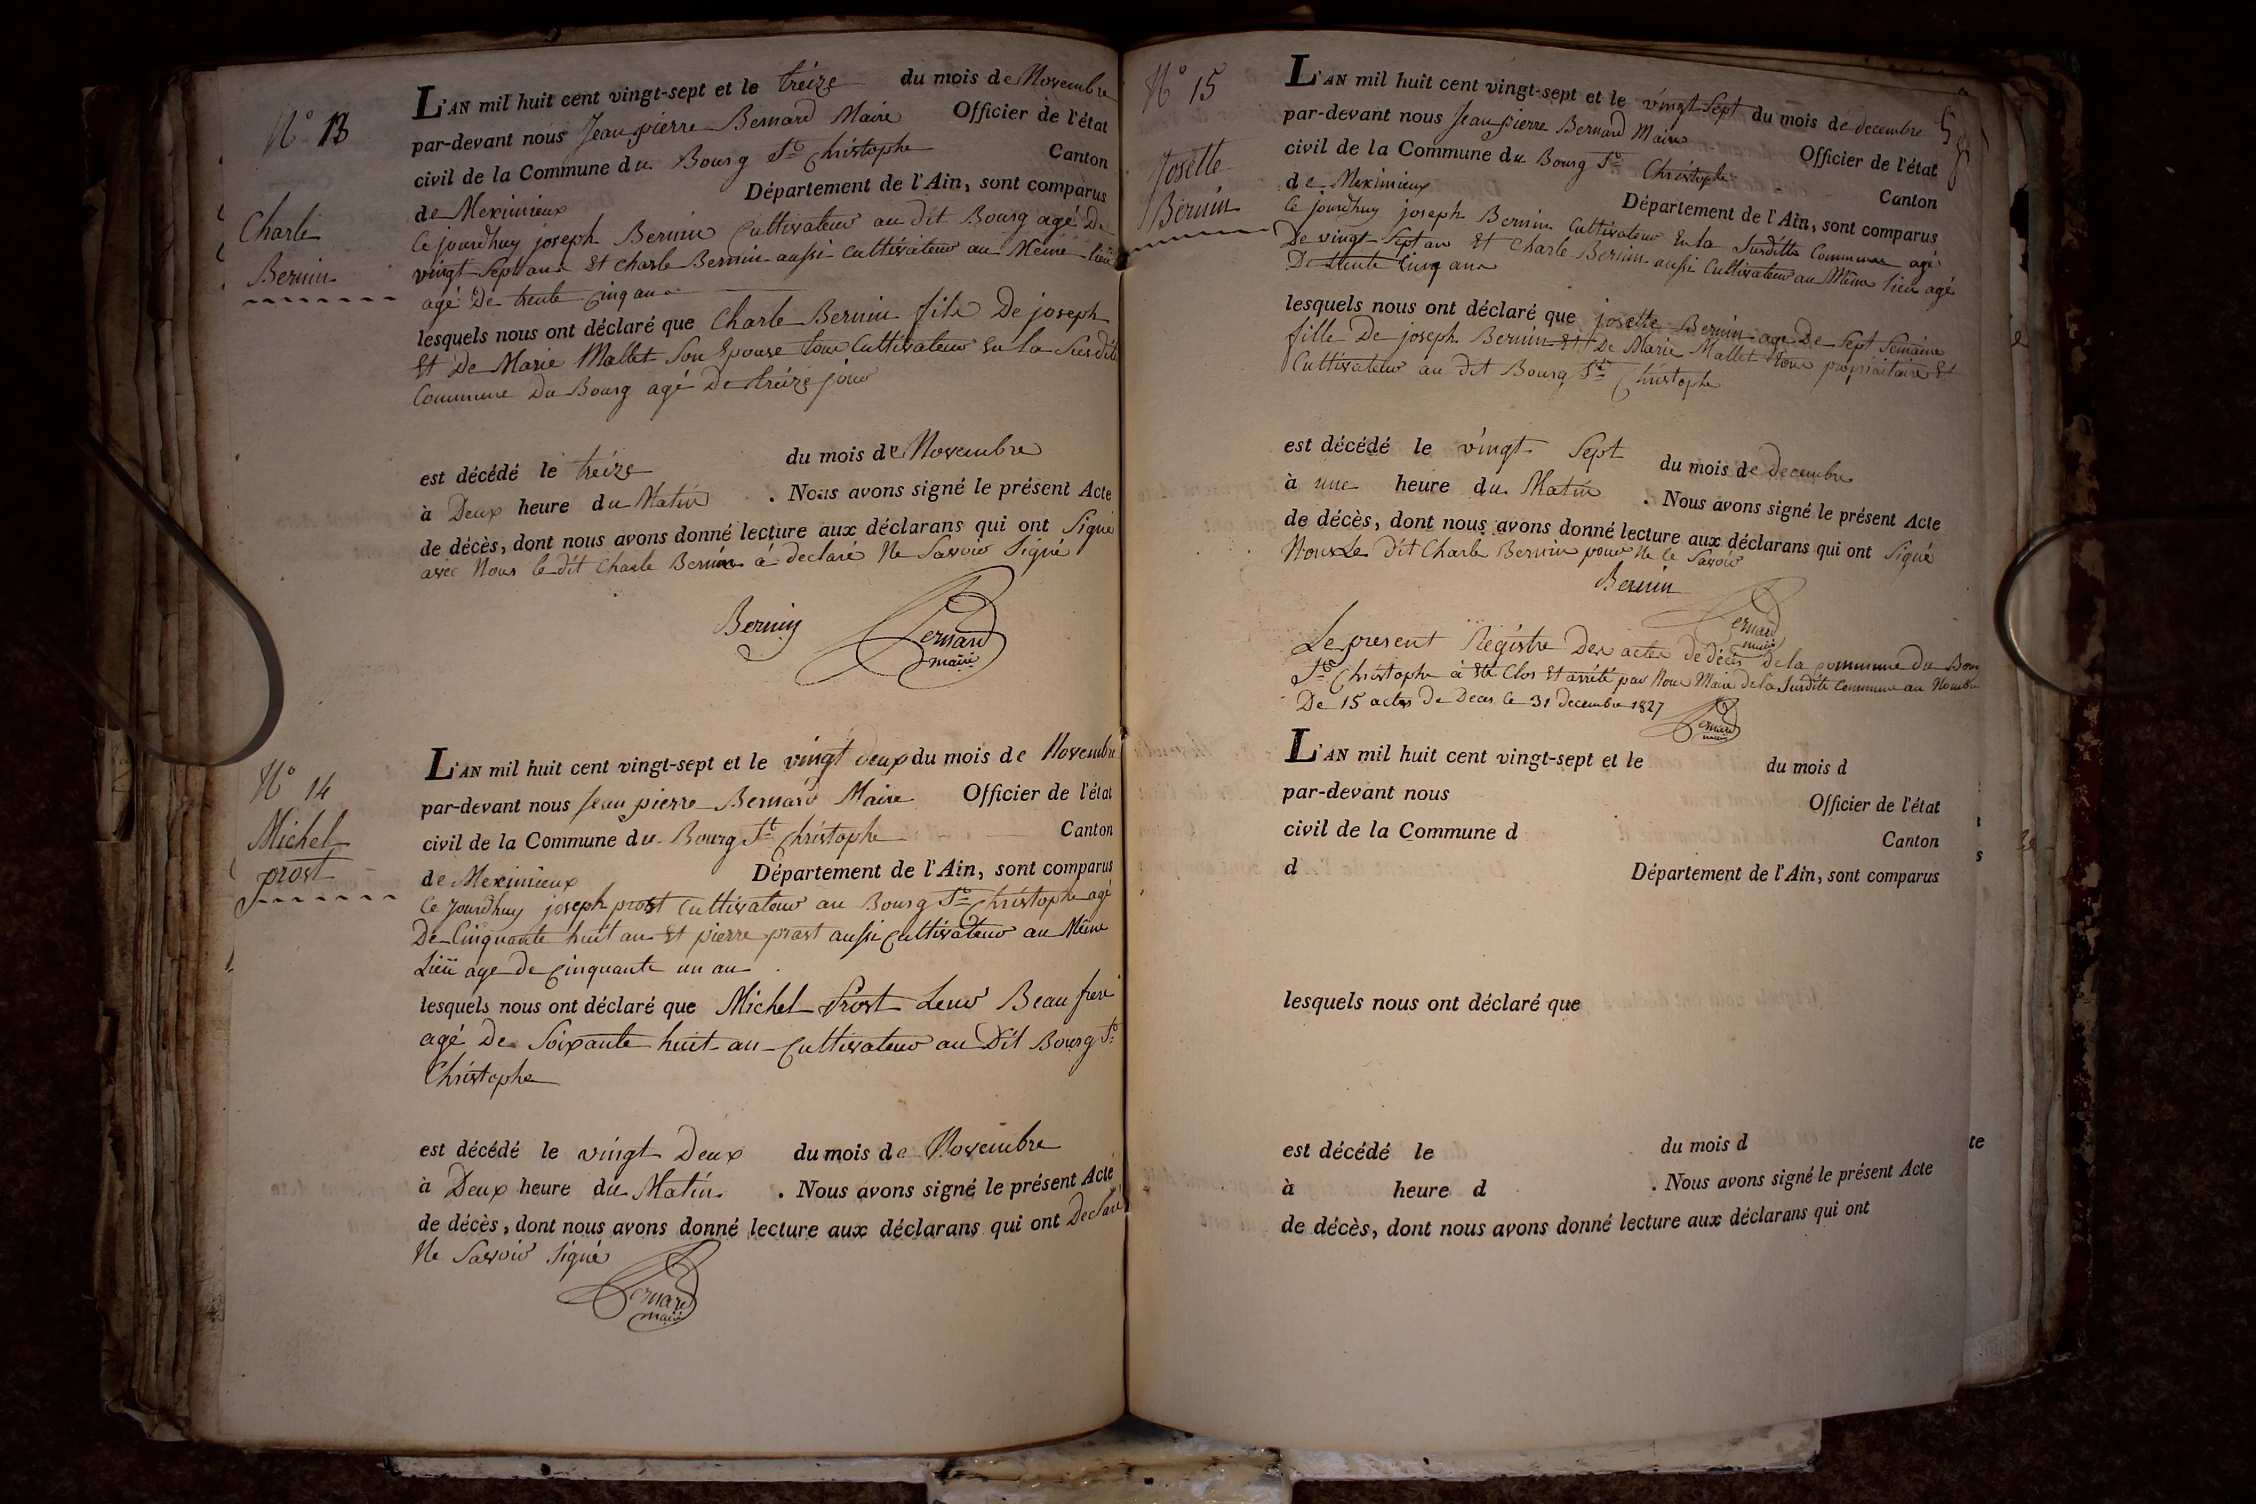 N° 13
Charle
Bernin
L'AN mil huit cent vingt-sept et le treize du mois de Novembre
par-devant nous Jean pierre Bernard Maire Officier de l'état
civil de la Commune du Bourg St Christophe Canton
de Meximieux Département de l'Ain, sont comparus
Ce jourdhuy joseph Bernin Cultivateur au dit Bourg agé De
vingt Sept ans Et Charle Bernin aussi Cultivateur au Même lieü
agé De trente Cinq ans
lesquels nous ont déclaré que Charle Bernin fils De joseph
Et De Marie Mallet Son Epouse tous Cultivateur En la Susdite
Commune Du Bourg agé De treize jour
est décédé le treize du mois de Novembre
à Deux heure du Matin . Nous avons signé le présent Acte
de décès, dont nous avons donné lecture aux déclarans qui ont Signé
avec Nous le dit Charle Bernin à declaré Ne Savoir Signé
Bernin
Bernard
maire
N° 14
Michel
prost
L'AN mil huit cent vingt-sept et le vingt deux du mois de Novembre
par-devant nous Jean pierre Bernard Maire Officier de l'état
civil de la Commune du Bourg St Christophe Canton
de Meximieux Département de l'Ain, sont comparus
Ce jourdhuy joseph prost Cultivateur au Bourg St Christophe agé
De Cinquante huit an Et pierre prost aussi Cultivateur au Même
Lieü age de Cinquante un an
lesquels nous ont déclaré que Michel Prost Leur Beau frere
agé De Soixante huit an Cultivateur au Dit Bourg St
Christophe
est décédé le vingt Deux du mois de Novembre
à Deux heure du Matin . Nous avons signé le présent Acte
de décès, dont nous avons donné lecture aux déclarans qui ont Declaré
Ne Savoir Signé
Bernard
maire
N° 15
Josette
Bernin
L'AN mil huit cent vingt-sept et le vingt Sept du mois de decembre
par-devant nous Jean pierre Bernard Maire Officier de l'état
civil de la Commune du Bourg St Christophe Canton
de Meximieux Département de l'Ain, sont comparus
Ce jourdhuy joseph Bernin Cultivateur En la Susditte Commune agé
De vingt Sept an Et Charle Bernin aussi Cultivateur au Même lieu agé
De trente Cinq ans
lesquels nous ont déclaré que josette Bernin age De Sept Semaine
fille De joseph Bernin Et De Marie Mallet tous propriaitaire Et
Cultivateur au dit Bourg St Christophe
est décédé le vingt Sept du mois de Decembre
à une heure du Matin . Nous avons signé le présent Acte
de décès, dont nous avons donné lecture aux déclarans qui ont Signé
Nous Le dit Charle Bernin pour Ne le Savoir
Bernin
Bernard
maire
Le present Registre Des actes de décès de la commune du Bourg
St Christophe à été Clos Et arrété par Nous Maire de la Susdite Commune au Nombre
De 15 actes de Deces le 31 decembre 1827
Bernard
maire
L'AN mil huit cent vingt-sept et le du mois d
par-devant nous Officier de l'état
civil de la Commune d Canton
d Département de l'Ain, sont comparus
lesquels nous ont déclaré que
est décédé le du mois d
à heure d . Nous avons signé le présent Acte
de décès, dont nous avons donné lecture aux déclarans qui ont